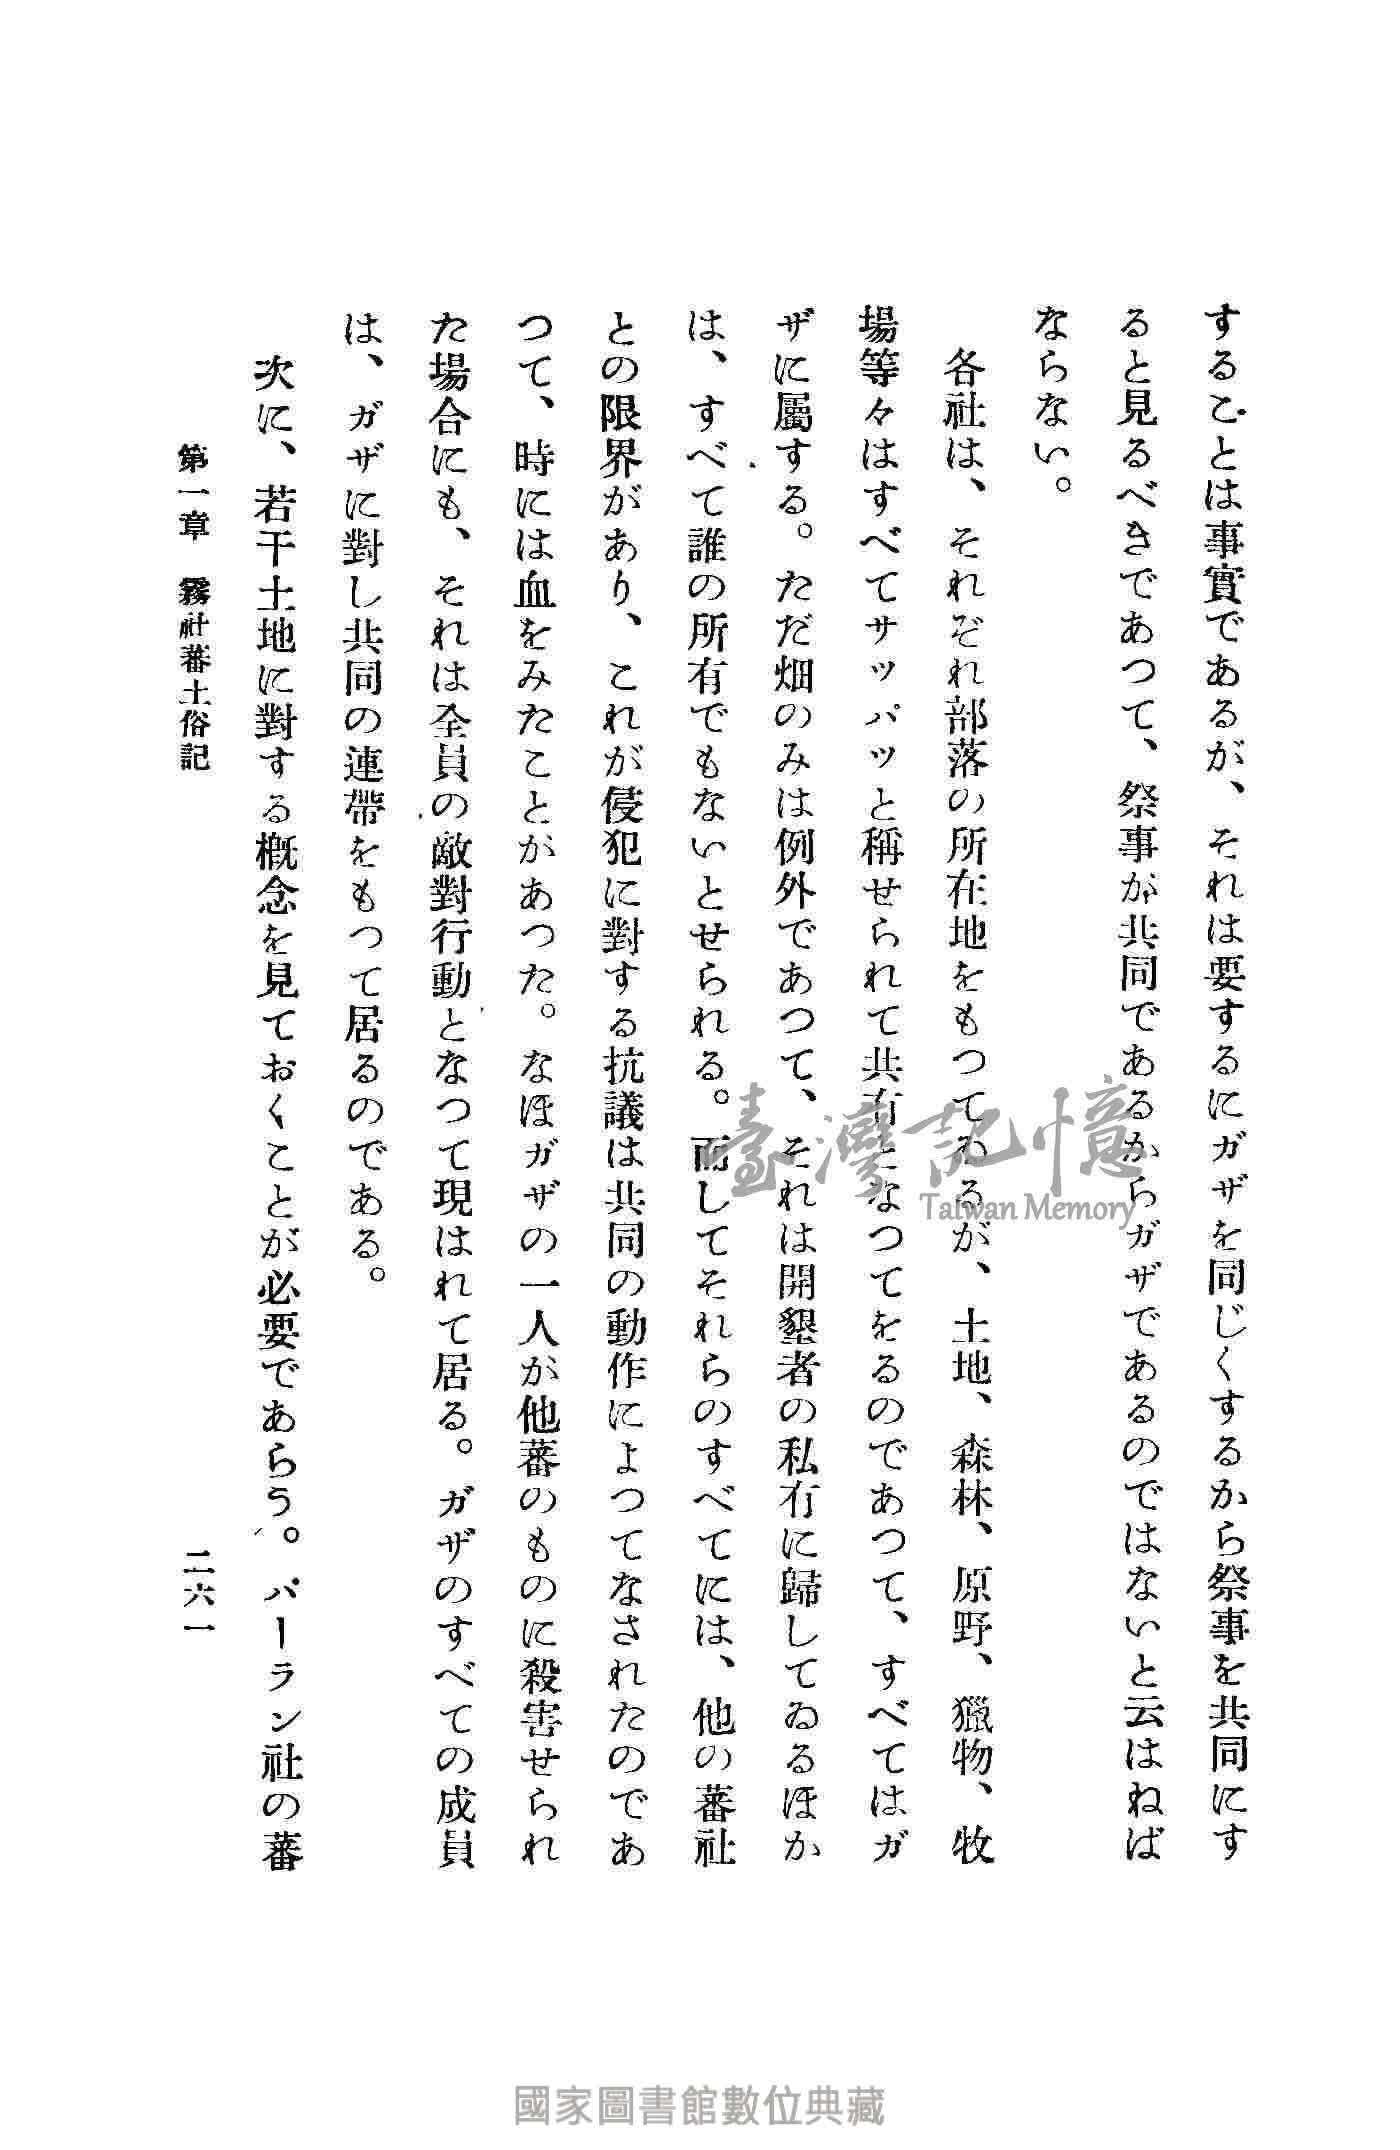 することは事實であるが、それは要するにガザを同じくするから祭事を共同にす
ると見るべきであつて、祭事が共同であるからガザであるのではないと云はねば
ならない。
各社は、それぞれ部落の所在地をもつてゐるが、土地、森林、原野、獵物、牧
場等々はすべてサッパッと稱せられて共有となつてをるのであつて、すべてはガ
ザに屬する。ただ畑のみは例外であつて、それは開墾者の私有に歸してゐるほか
は、すべて誰の所有でもないとせられる。而してそれらのすべてには、他の蕃社
との限界があり、これが侵犯に對する抗議は共同の動作によつてなされたのであ
つて、時には血をみたことがあつた。なほガザの一人が他蕃のものに殺害せられ
た場合にも、それは全員の敵對行動となつて現はれて居る。ガザのすべての成員
は、ガザに對し共同の連帶をもつて居るのである。
次に、若干土地に對する槪念を見ておくことが必要であらう。パーラン社の蕃
第一章　霧社蕃土俗記
二六一
臺灣記憶
Taiwan Memory
國家圖書館數位典藏